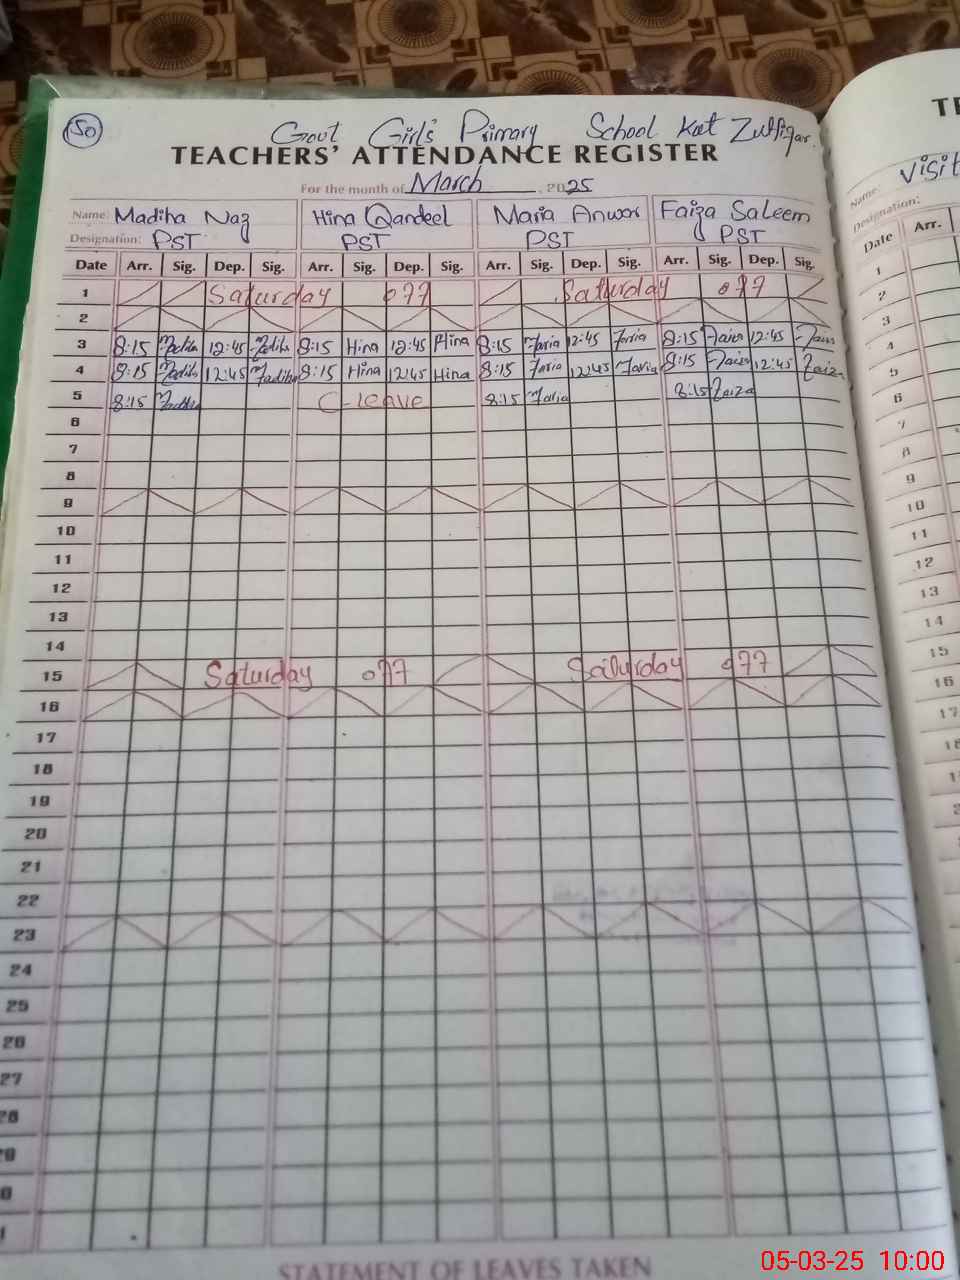 50
Govt Girl's Primary School Kot Zulfiqar.
TEACHERS' ATTENDANCE REGISTER
For the month of March, 2025
Name: Madiha Naz Hina Qandeel Maria Anwar Faiza Saleem
Designation: PST PST PST PST
Date Arr. Sig. Dep. Sig. Arr. Sig. Dep. Sig. Arr. Sig. Dep. Sig. Arr. Sig. Dep. Sig.
1 Saturday off Saturday off
2
3 8:15 Madiha 12:45 Madiha 8:15 Hina 12:45 Hina 8:15 Maria 12:45 Maria 8:15 Faiza 12:45 Faiza
4 8:15 Madiha 12:45 Madiha 8:15 Hina 12:45 Hina 8:15 Maria 12:45 Maria 8:15 Faiza 12:45 Faiza
5 8:15 Madiha C-leave 8:15 Maria 8:15 Faiza
6
7
8
9
10
11
12
13
14
15 Saturday off Saturday off
16
17
18
19
20
21
22
23
24
25
26
27
28
STATEMENT OF LEAVES TAKEN
Name: Visit
Designation:
Date Arr.
1
2
3
4
5
6
7
8
9
10
11
12
13
14
15
16
17
05-03-25 10:00